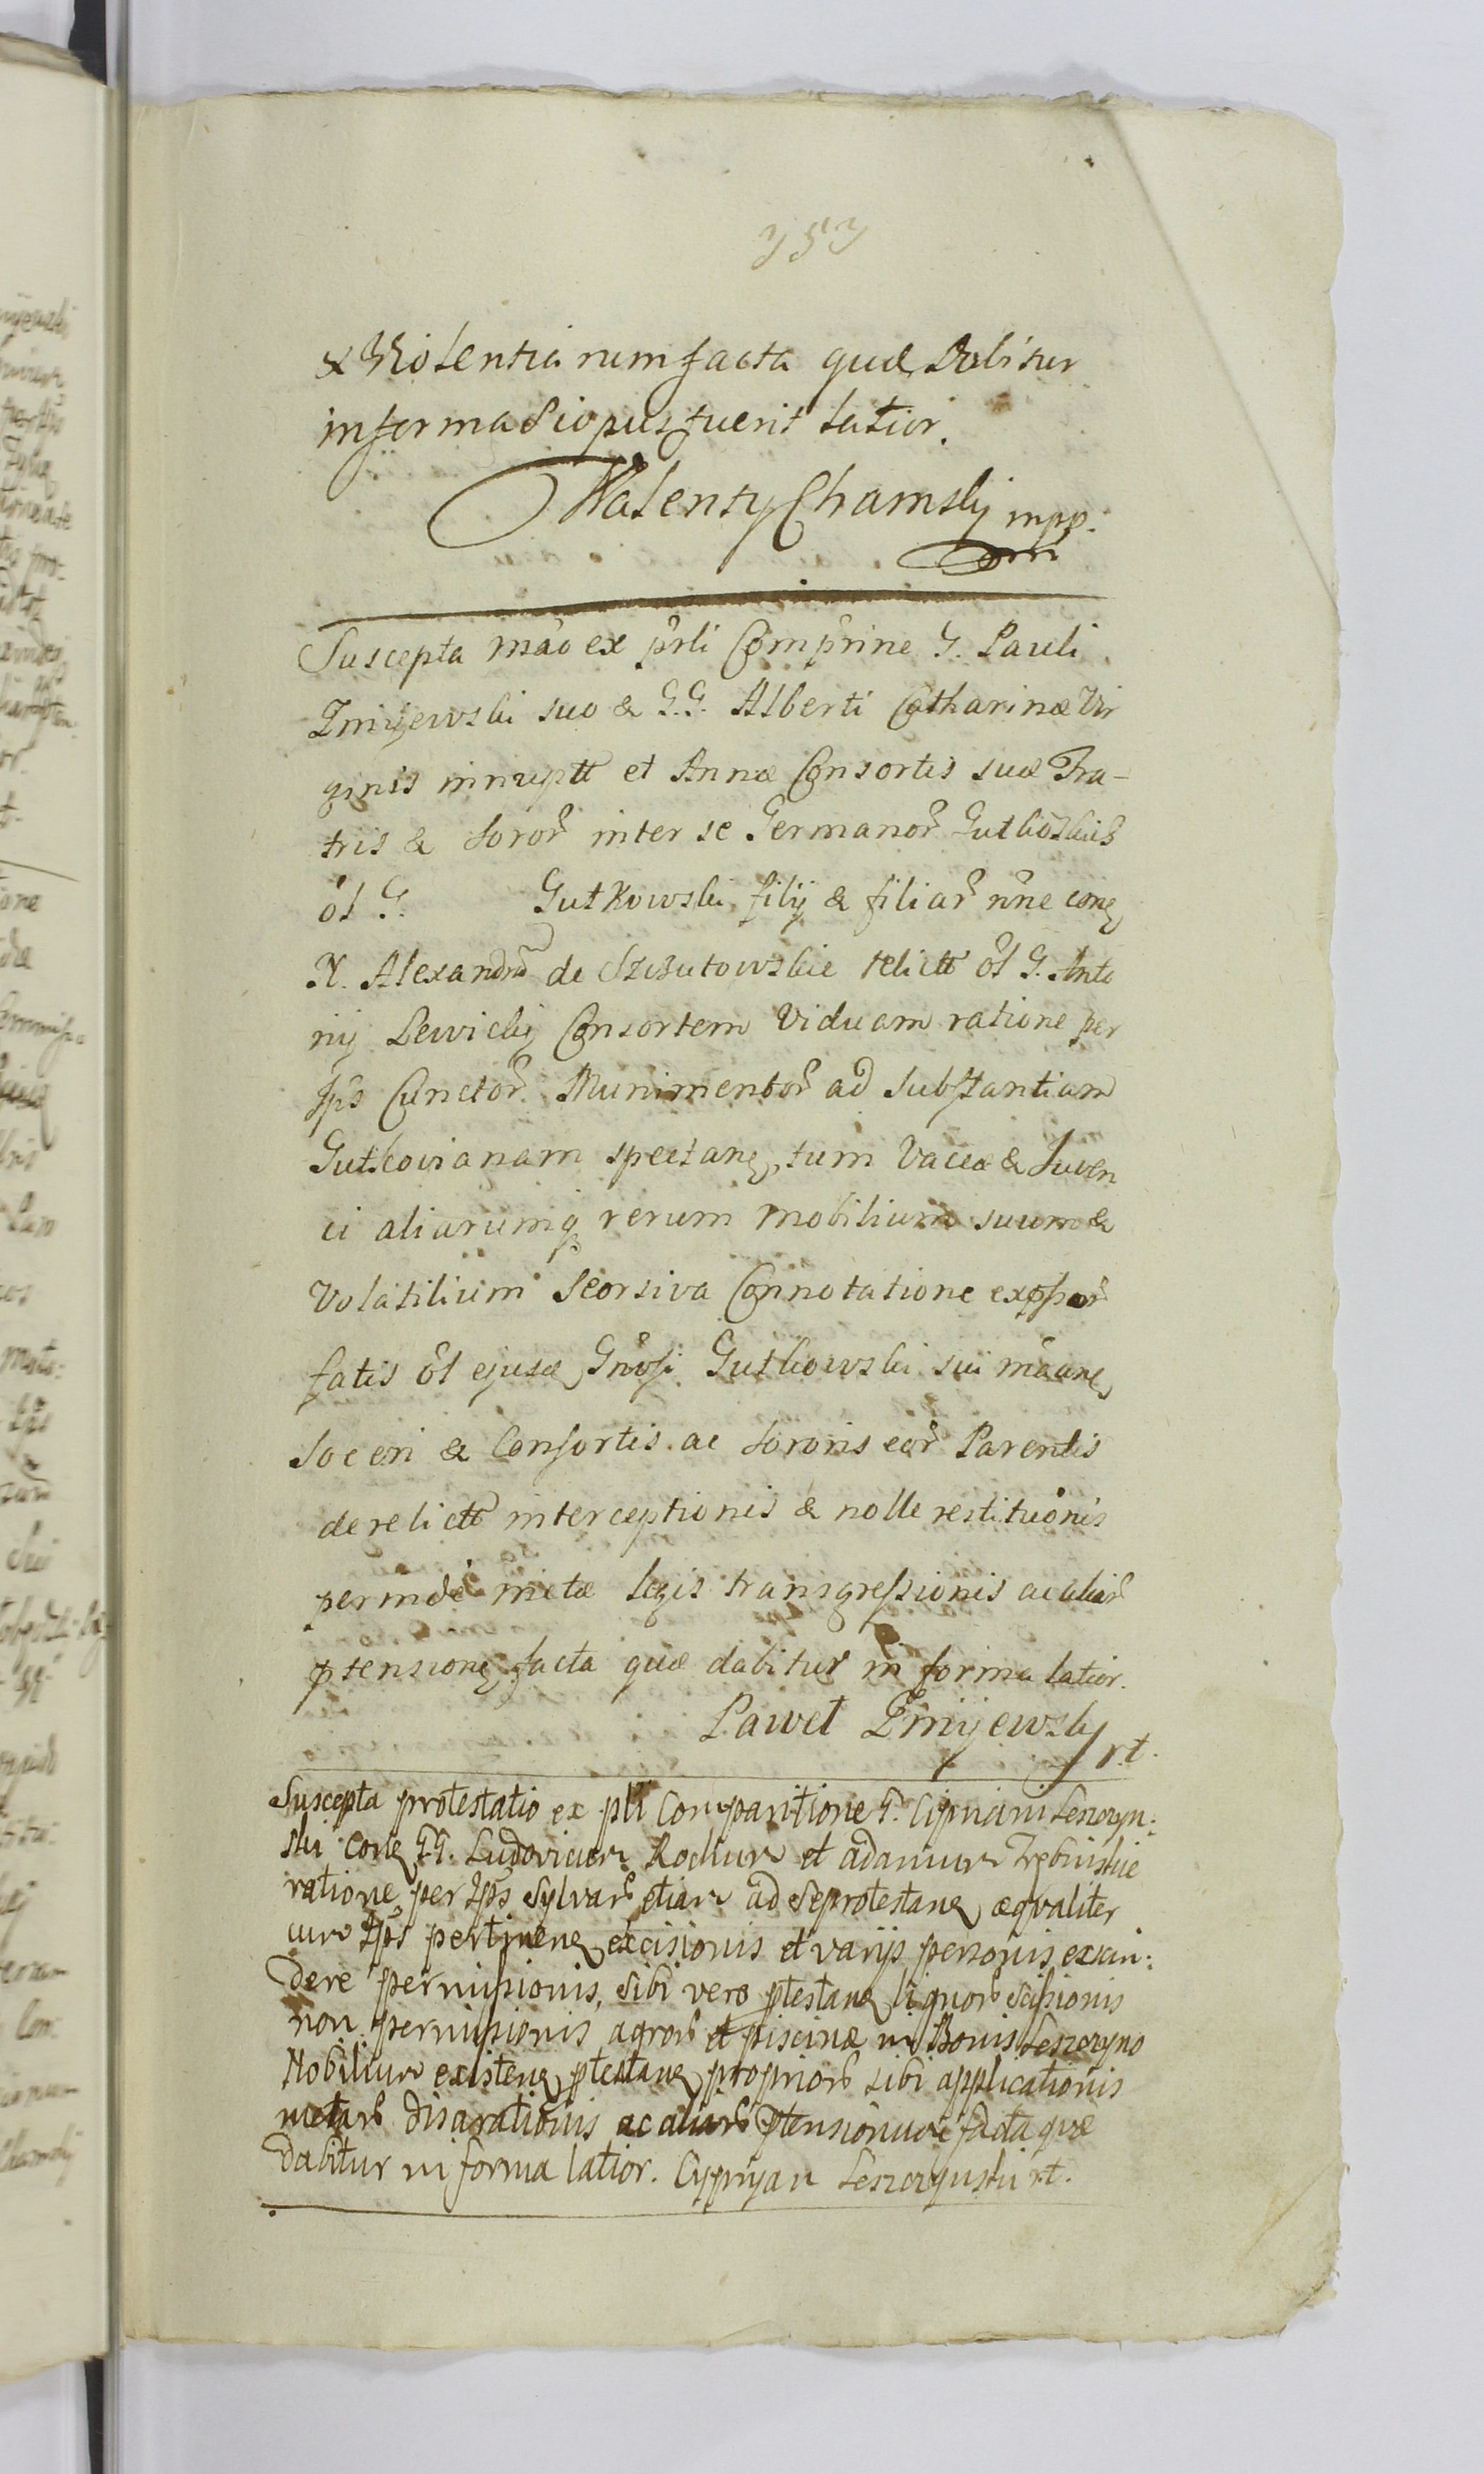 353
& Violentiarum facta quæ Dabitur
in forma si opus fuerit latior.
Walenty Chamsky mpp.
Suscepta mão ex prli Comprine G. Pauli
Zmijewski suo & G.G. Alberti Catharinæ Vir
ginis innuptt et Annæ Consortis suæ Fra-
tris & Soror inter se Germanor Gutkowskich
ol G. Gutkowski filij & filiar nne cong
N. Alexandra de Szczutowskie relictt ol G. Anto
nij Lewicky Consortem Viduam ratione per
Ips Cunctor Munimentor ad Substantiam
Gutkovianam spectang, tum Vaccæ & Juven
ci aliarumq rerum mobilium suum &
Volatilium Seorsiva Connotatione
fatis ol ejusd Gnosi Gutkowski sui mãang
Soceri & Consortis ac Sororis eor Parentis
derelictt interceptionis & nolle restituonis
perinde metæ legis transgressionis ac aliar
ptensiong facta quæ dabitur in forma latior.
Paweł Zmijewsky rt.
Suscepta protestatio ex pli Comparitione G. Cipriani Leszczyn:
ski cong GG. Ludovicum Rochum et Adamum Trębinskie
ratione per Ips Sylvar etiam ad Se protestang æqvaliter
cum Ips pertineng excisionis et varijs personis excin:
dere permissionis, sibi vero ptestang lignor scissionis
non permissionis agror et piscinæ in Bonis Leszczyno
Nobilium existeng ptestang proprior sibi applicationis
metar disarationis ac aliar ptensionum facta quæ
dabitur in forma latior. Cypryan Leszczynski rt.